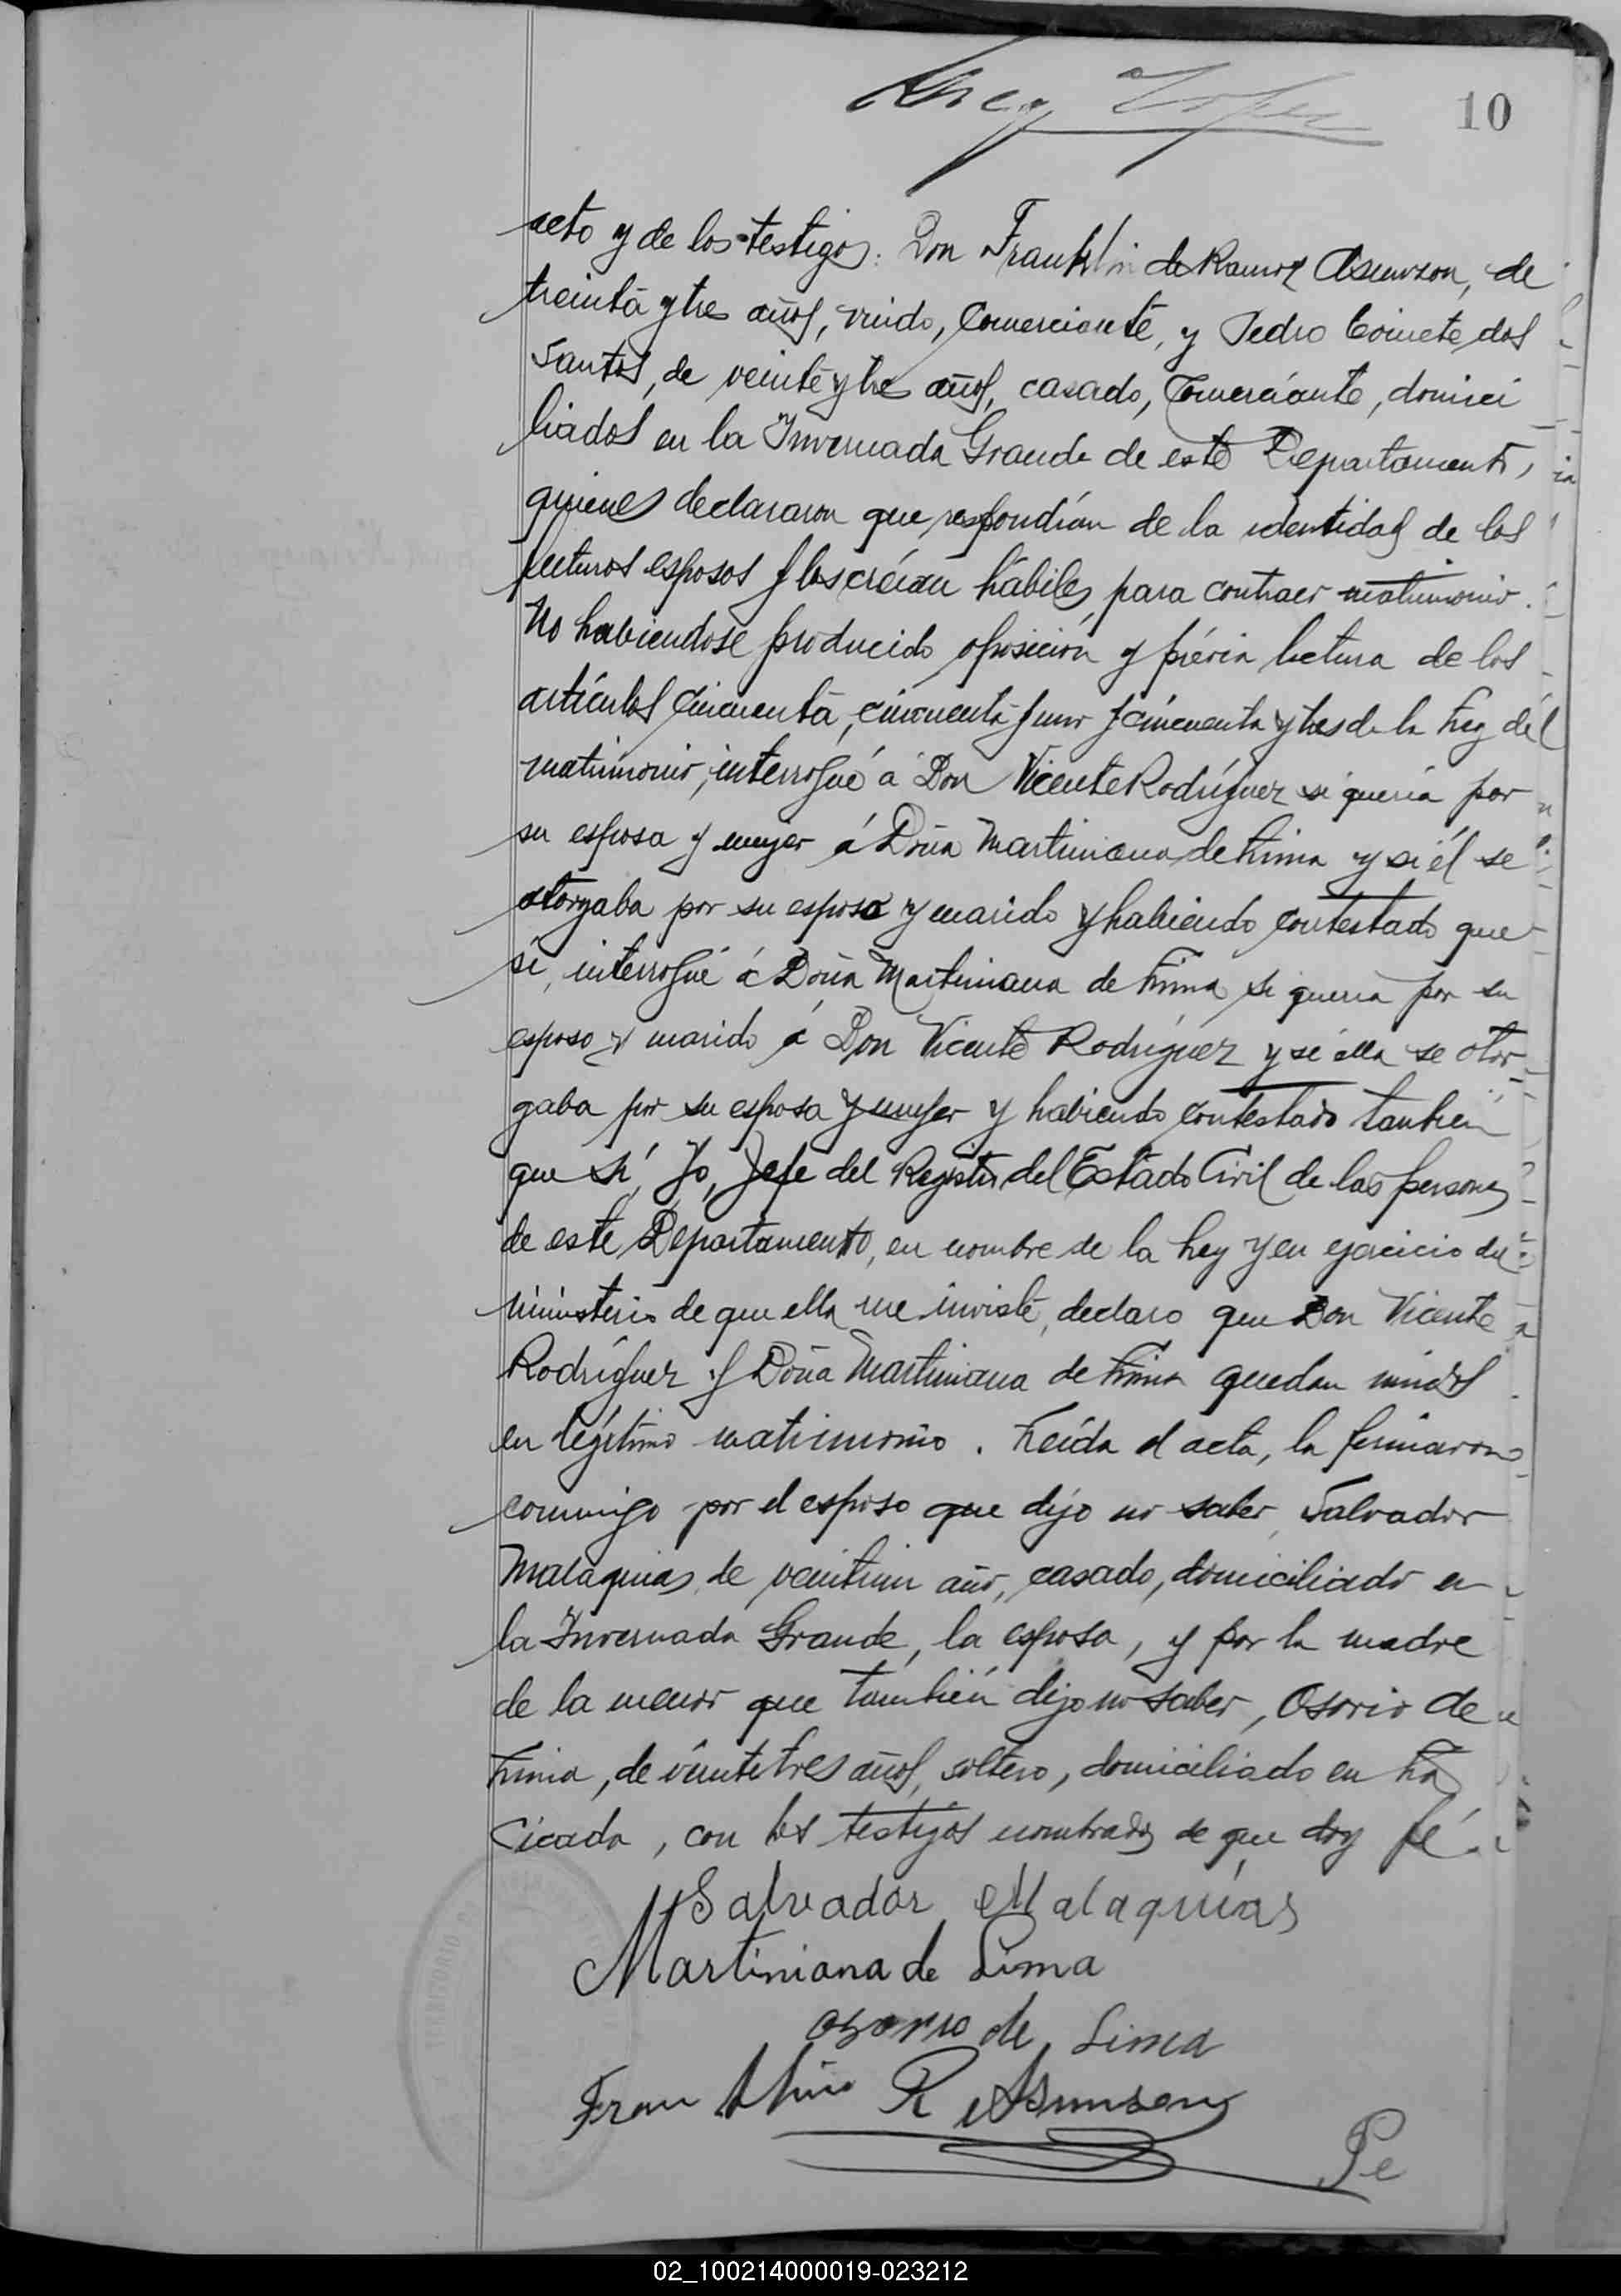 10
acto y de los testigos: Don Franklin de Ramos Asumson, de
treinta y tres años, viudo, Comerciante, y Pedro Coimete dos
Santos, de veinte y tres años, casado, Comerciante, domici
liados en la Invernada Grande de este Departamento,
quienes declararon que respondían de la identidad de los
futuros esposos y los creían hábiles para contraer matrimonio.
No habiendose producido oposición y prévia lectura de los
artículos cincuenta, cincuenta y uno y cincuenta y tres de la Ley del
matrimonio, interrogué á Don Vicente Rodríguez si quería por
su esposa y mujer á Doña Martiniana de Lima y si él se
otorgaba por su esposo y marido y habiendo contestado que
sí, interrogué á Doña Martiniana de Lima si quería por su
esposo y marido á Don Vicente Rodríguez y si ella se otor
gaba por su esposa y mujer y habiendo contestado tambien
que sí, Yo, Jefe del Registro del Estado Civil de las personas
de este Departamento, en nombre de la Ley y en ejercicio del
ministerio de que ella me inviste, declaro que Don Vicente
Rodríguez y Doña Martiniana de Lima quedan unidos
en legítimo matrimonio. Leída el acta, la firmaron
conmigo por el esposo que dijo no saber, Salvador
Malaquias, de veintiun año, casado, domiciliado en
la Invernada Grande, la esposa, y por la madre
de la menor que también dijo no saber, Osorio de
Lima, de veintetres años, soltero, domiciliado en La
Cicada, con los testigos nombrados de que doy fé.
Salvador Malaquías
Martiniana de Lima
Osorio de Lima
R Asumson
Pe
TERRITORIO
02_100214000019-023212